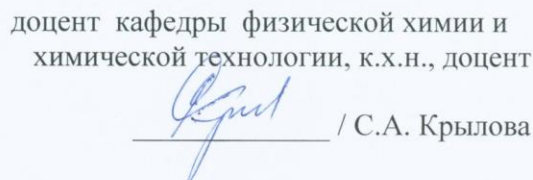 доцент кафедры физической химии и
химической технологии, к.х.н., доцент
/ С.А. Крылова